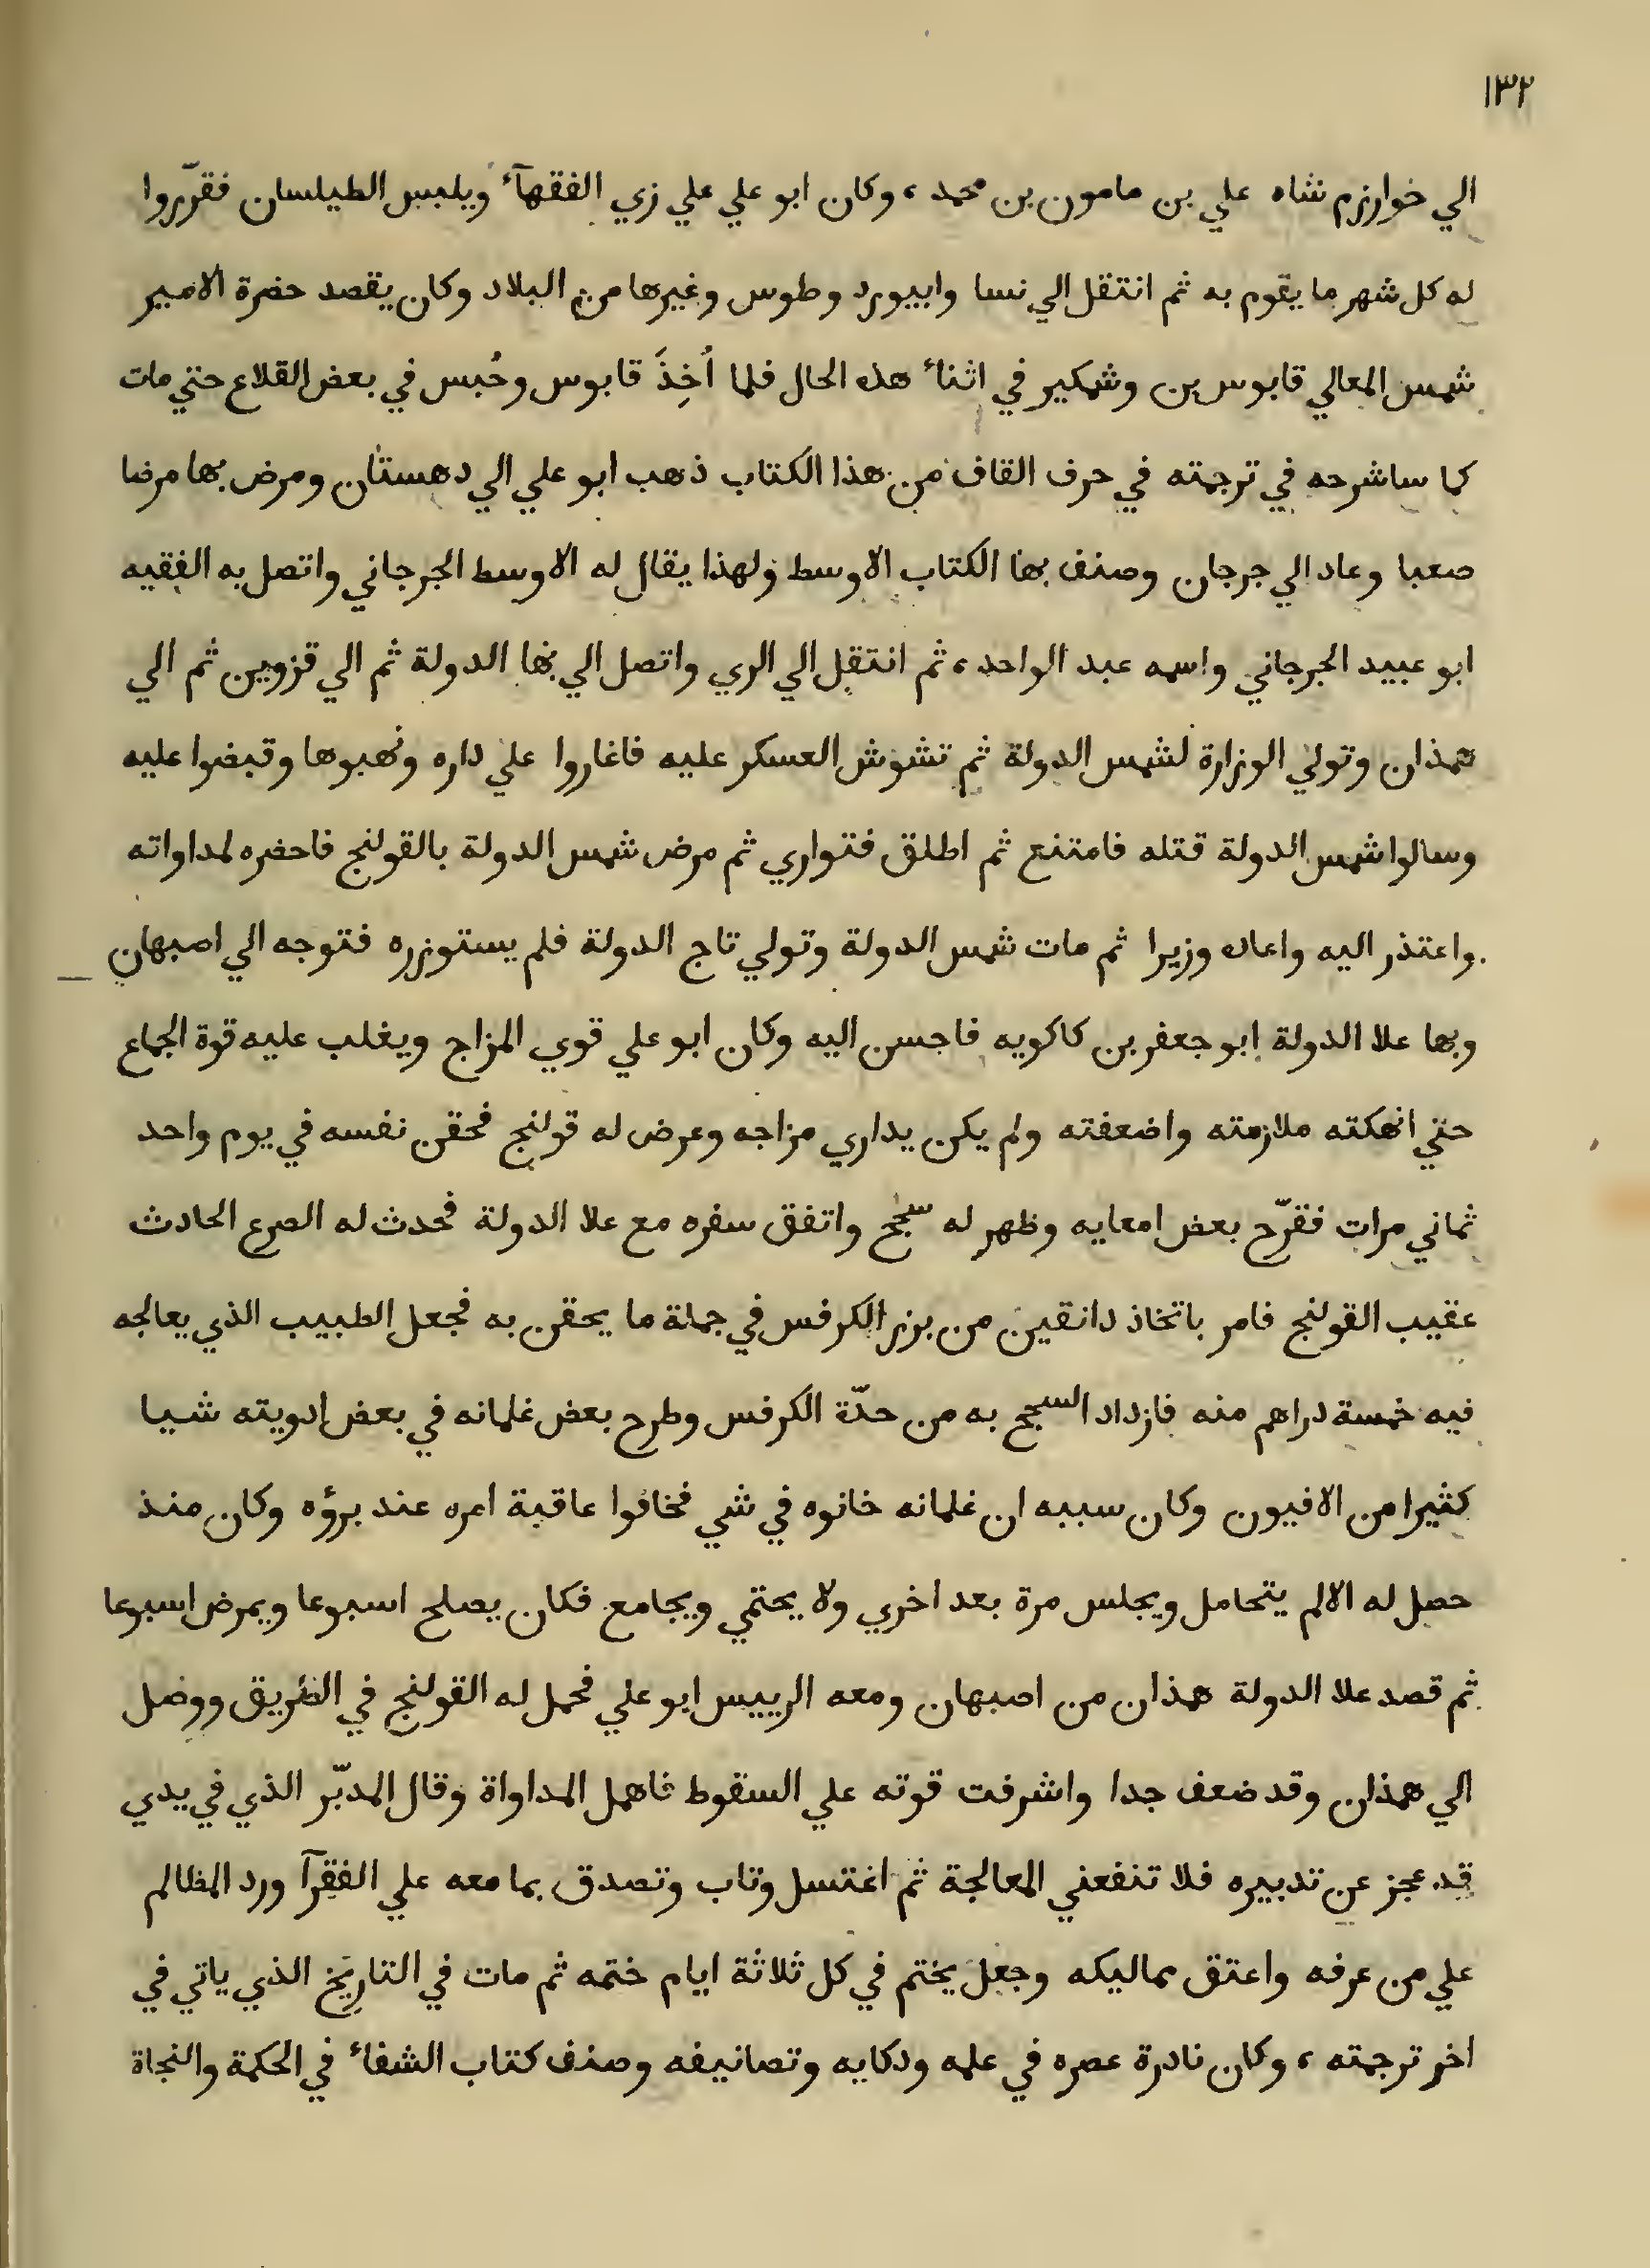 ١٣٢
الي خوارزم شاه علي بن مامون بن محمد ، وكان ابو علي علي زي الفقهآء ويلبس الطيلسان فقرّروا
له كل شهر ما يقوم به ثم انتقل الي نسا وابيورد وطوس وغيرها من البلاد وكان يقصد حضرة الامير
شمس المعالي قابوس بن وشمكير في اثناء هذه الحال فلما اُخِذَ قابوس وحُبس في بعض القلاع حتي مات
كما ساشرحه في ترجمته في حرف القاف من هذا الكتاب ذهب ابو علي الي دهستان ومرض بها مرضا
صعبا وعاد الي جرجان وصنف بها الكتاب الاوسط ولهذا يقال له الاوسط الجرجاني واتصل به الفقيه
ابو عبيد الجرجاني واسمه عبد الواحد ، ثم انتقل الي الري واتصل الي بها الدولة ثم الي قزوين ثم الي
همذان وتولي الوزارة لشمس الدولة ثم تشوش العسكر عليه فاغاروا علي داره ونهبوها وقبضوا عليه
وسالوا شمس الدولة قتله فامتنع ثم اطلق فتواري ثم مرض شمس الدولة بالقولنج فاحضره لمداواته
واعتذر اليه واعاده وزيرا ثم مات شمس الدولة وتولي تاج الدولة فلم يستوزره فتوجه الي اصبهان
وبها علا الدولة ابو جعفر بن كاكويه فاحسن اليه وكان ابو علي قوي المزاج ويغلب عليه قوة الجماع
حتي انهكته ملازمته واضعفته ولم يكن يداري مزاجه وعرض له قولنج فحقن نفسه في يوم واحد
ثماني مرات فقرّح بعض امعايه وظهر له سحج واتفق سفره مع علا الدولة فحدث له الصرع الحادث
عقيب القولنج فامر باتخاذ دانقين من بزر الكرفس في جملة ما يحقن به فجعل الطبيب الذي يعالجه
فيه خمسة دراهم منه فازداد السحج به من حدّة الكرفس وطرح بعض غلمانه في بعض ادويته شيا
كثيرا من الافيون وكان سببه ان غلمانه خانوه في شي فخافوا عاقبة امره عند برؤه وكان منذ
حصل له الالم يتحامل ويجلس مرة بعد اخري ولا يحتمي ويجامع فكان يصلح اسبوعا ويمرض اسبوعا
ثم قصد علا الدولة همذان من اصبهان ومعه الرييس ابو علي فحمل له القولنج في الطريق ووصل
الي همذان وقد ضعف جدا واشرفت قوته علي السقوط فاهمل المداواة وقال المدبّر الذي في يدي
قد عجز عن تدبيره فلا تنفعني المعالجة ثم اغتسل وتاب وتصدق بما معه علي الفقرآ ورد المظالم
علي من عرفه واعتق مماليكه وجعل يختم في كل ثلاثة ايام ختمه ثم مات في التاريخ الذي ياتي في
اخر ترجمته ، وكان نادرة عصره في علمه ودكايه وتصانيفه وصنف كتاب الشفاء في الحكمة والنجاة